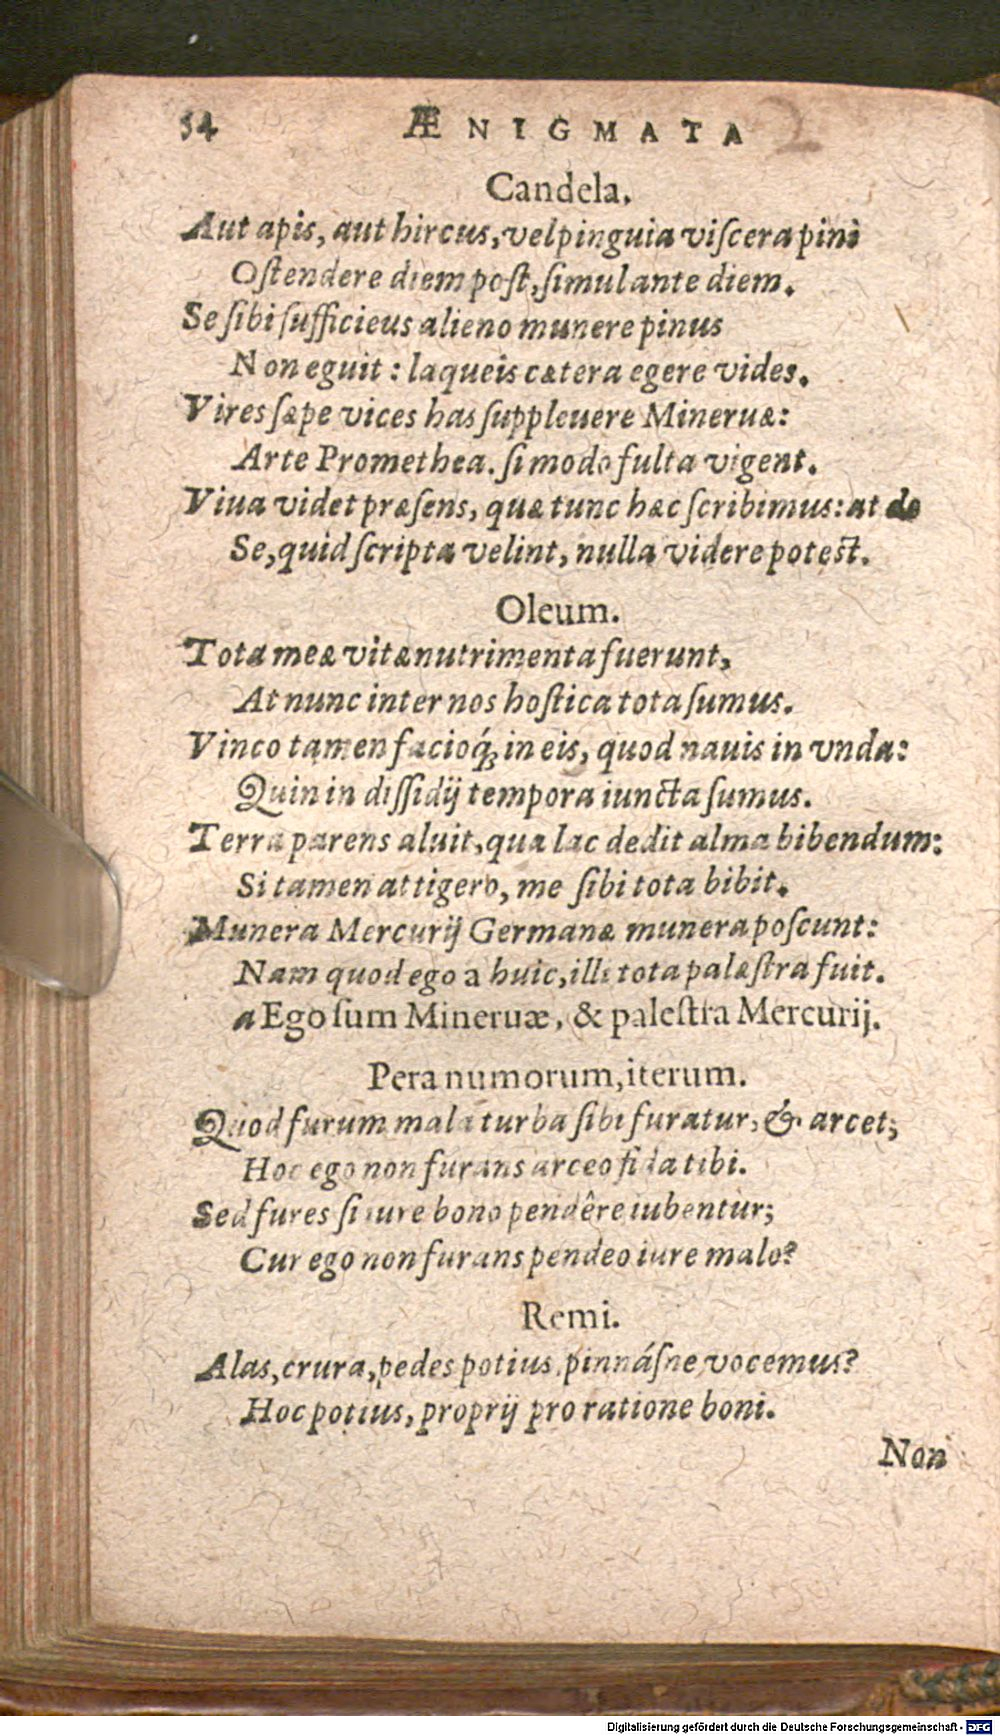 54 ÆNIGMATA
Candela.
Aut apis, aut hircus, vel pinguia viſcera pini
Oſtendere diem poſt, ſimul ante diem.
Se ſibi ſufficieus alieno munere pinus
Non eguit: laqueis cætera egere vides.
Vires ſæpe vices has ſuppleuere Mineruæ:
Arte Promethea. ſi modo fulta vigent.
Viua videt præſens, quæ tunc hæc ſcribimus: at de
Se, quid ſcripta velint, nulla videre poteſt.
Oleum.
Tota meæ vitæ nutrimenta fuerunt,
At nunc inter nos hoſtica tota ſumus.
Vinco tamen facioq́; in eis, quod nauis in vnda:
Quin in diſſidij tempora iuncta ſumus.
Terra parens aluit, qua lac dedit alma bibendum:
Si tamen attigero, me ſibi tota bibit.
Munera Mercurij Germanæ munera poſcunt:
Nam quod ego a huic, illi tota palæſtra fuit.
a Ego ſum Mineruæ, & paleſtra Mercurij.
Pera numorum, iterum.
Quod furum mala turba ſibi furatur, & arcet;
Hoc ego non furans arceo fida tibi.
Sed fures ſi iure bono pendêre iubentur;
Cur ego non furans pendeo iure malo?
Remi.
Alas, crura, pedes potius pinnáſne vocemus?
Hoc potius, proprij pro ratione boni.
Non
Digitalisierung gefördert durch die Deutsche Forschungsgemeinschaft - DFG